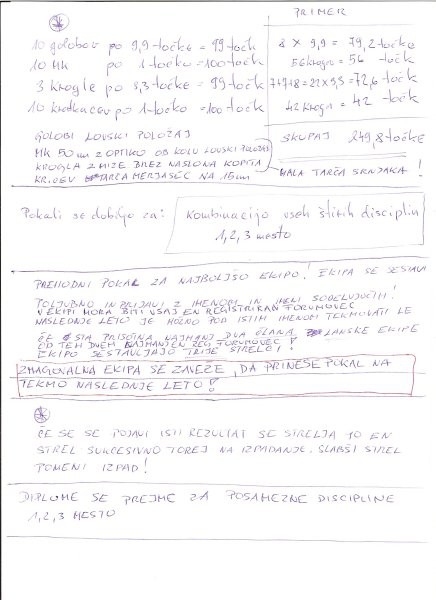 PRIMER
10 golobov po 9,9 točke = 99 točk
10 MK po 1 točko = 100 točk
3 krogle po 3,3 točke = 99 točk
10 krotkacev po 1 točko = 100 točk
8 x 9,9 = 79,2 točke
56 krogov = 56 točk
7+7+8=22x3,3 = 72,6 točk
42 krogov = 42 točk
SKUPAJ 249,8 točke
GOLOBI LOVSKI POLOŽAJ
MK 50m Z OPTIKO OB KOLU LOVSKI POLOŽAJ
KROGLA Z MIZE BREZ NASLONA KOPITA
TARČA MERJASEC NA 15m
MALA TARČA SRNJAKA!
Pokali se dobijo za:
kombinacijo vseh štirih disciplin
1,2,3 mesto
PREHODNI POKAL ZA NAJBOLJŠO EKIPO! EKIPA SE SESTAVI
POLJUBNO IN PRIJAVI Z IMENOM IN IMENI SODELUJOČIH!
V EKIPI MORA BITI VSAJ EN REGISTRIRAN FORUMOVEC
NASLEDNJE LETO JE MOŽNO POD ISTIM IMENOM TEKMOVATI LE
ČE STA PRISOTNA NAJMANJ DVA ČLANA LANSKE EKIPE
OD TEH DVEH NAJMANJ EN REG. FORUMOVEC!
EKIPO SESTAVLJAJO TRIJE STRELCI!
ZMAGOVALNA EKIPA SE ZAVEZE, DA PRINESE POKAL NA
TEKMO NASLEDNJE LETO!
ČE SE SE POJAVI ISTI REZULTAT SE STRELJA PO EN
STREL SUKCESIVNO TOREJ NA IZPADANJE. SLABŠI STREL
POMENI IZPAD!
DIPLOME SE PREJME ZA POSAMEZNE DISCIPLINE
1,2,3 MESTO